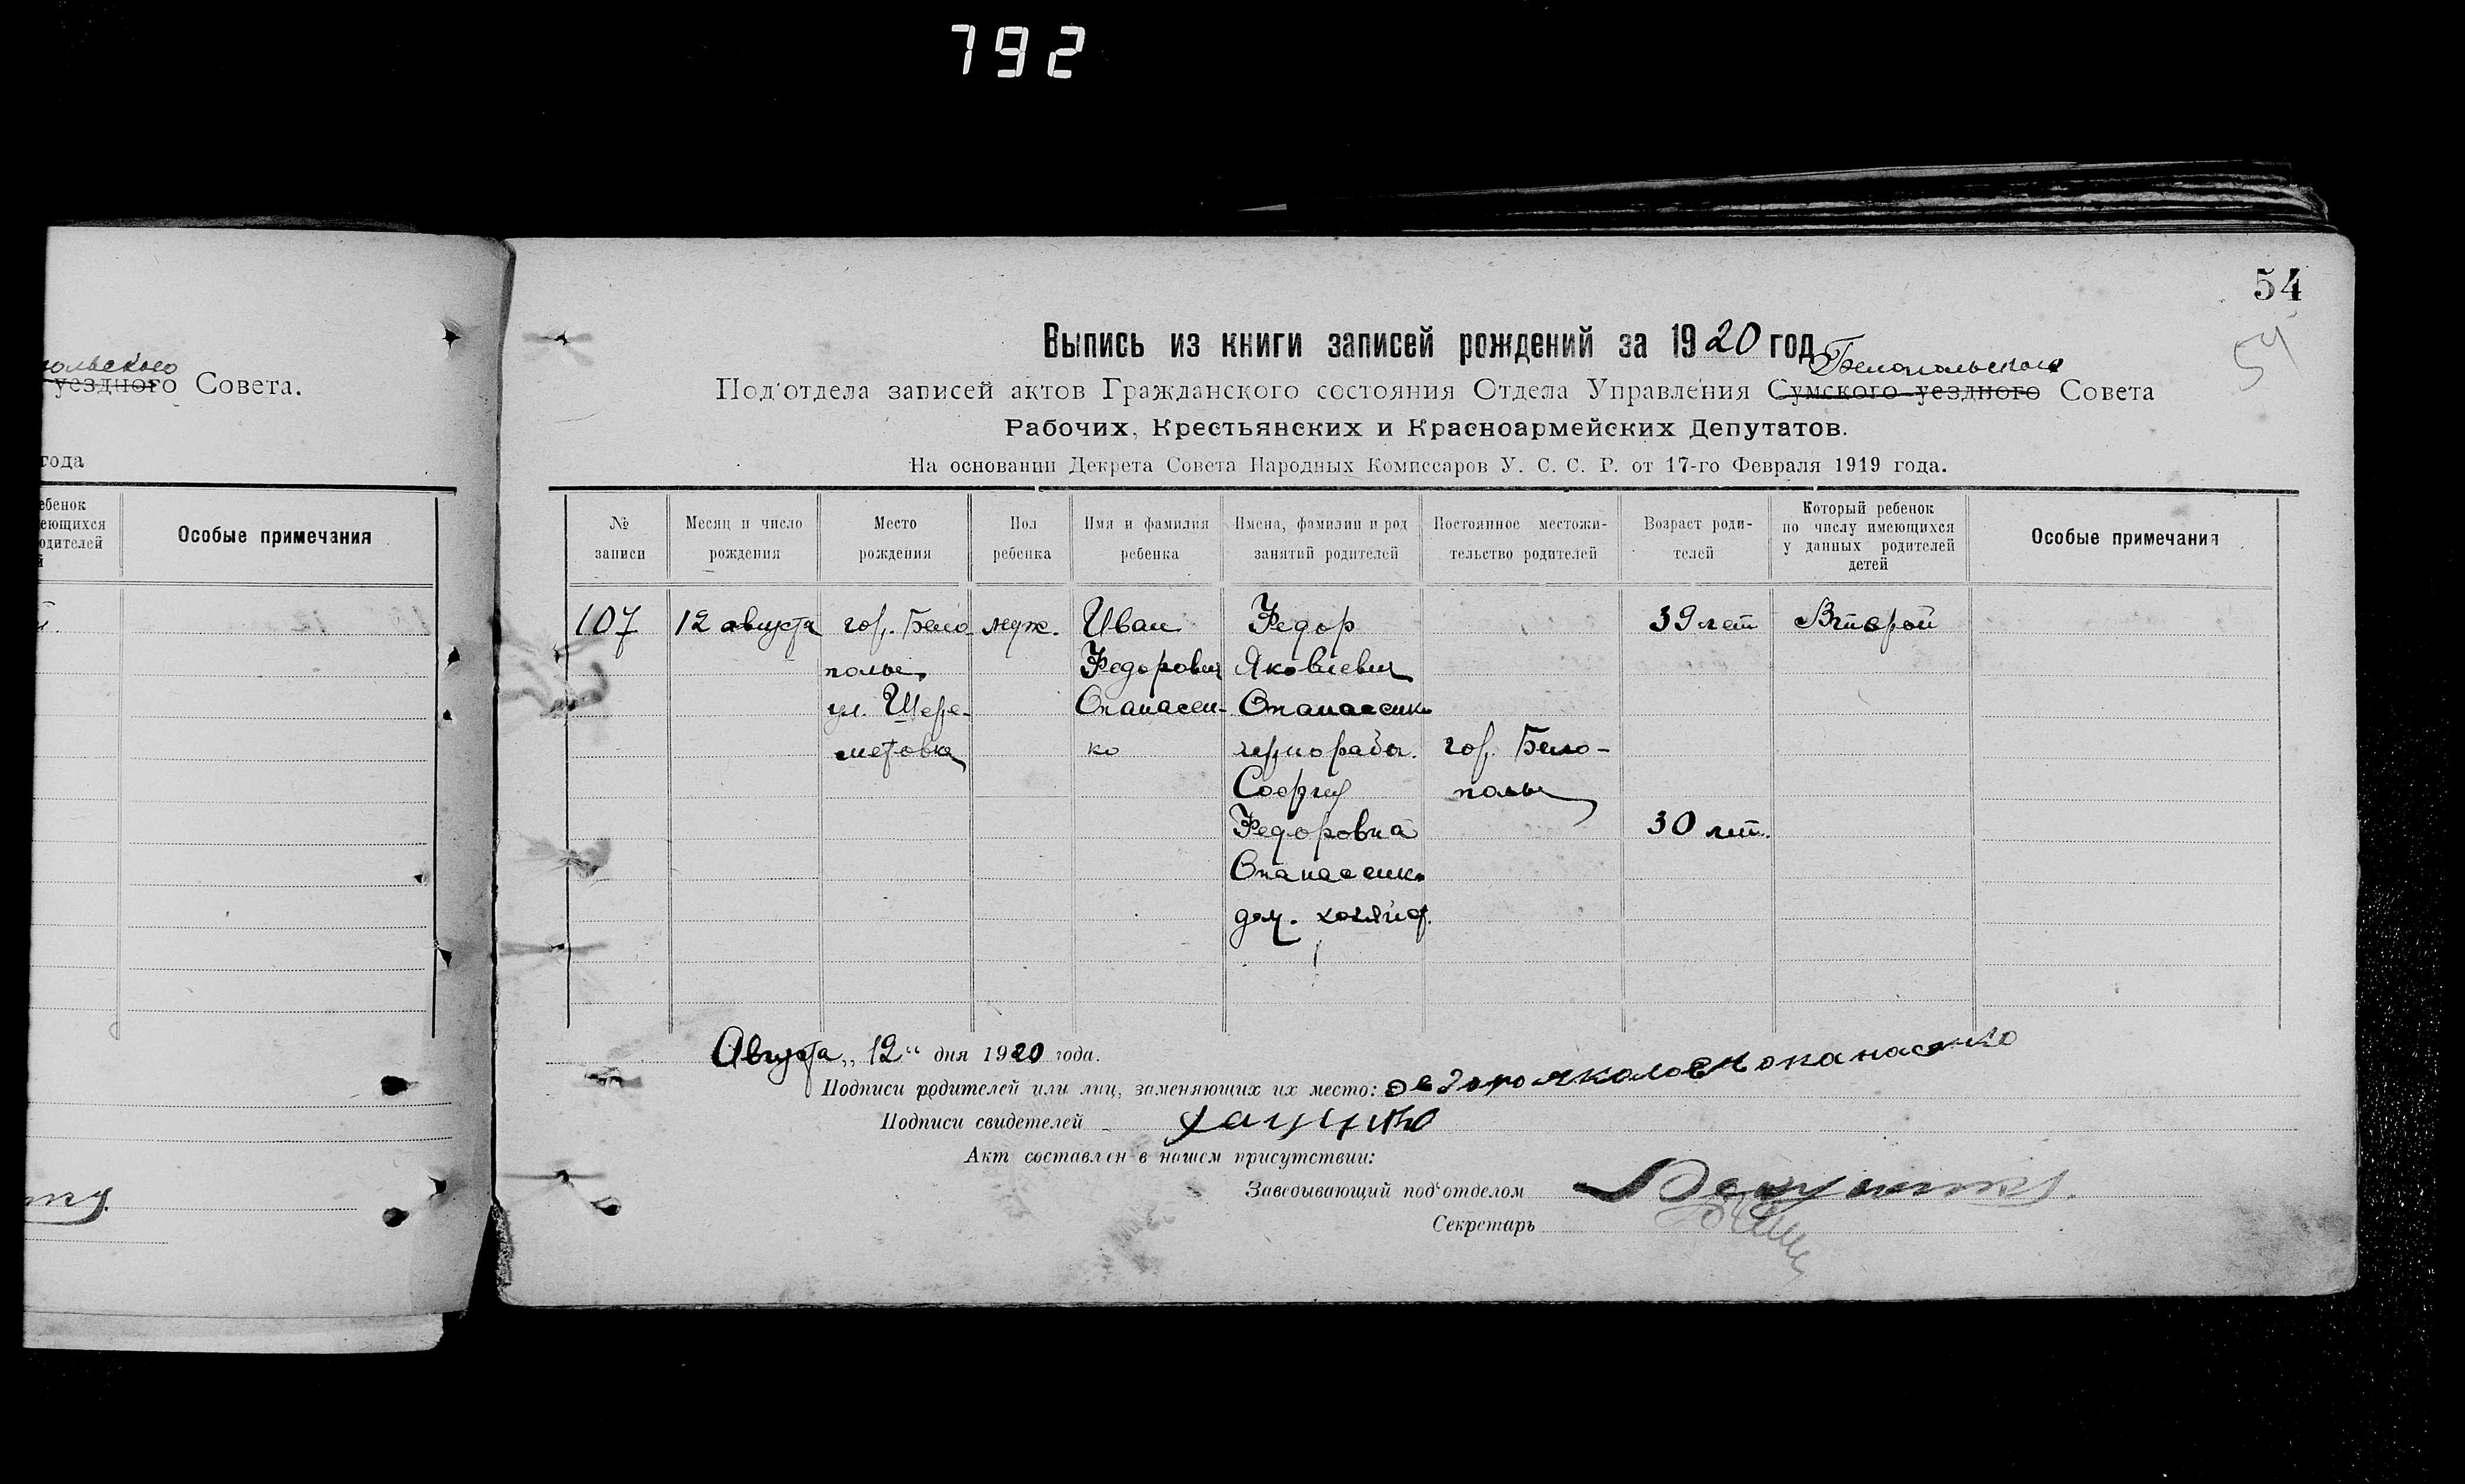 792
54
54
польского
уездного Совета.
года
Особые примечания
Выпись из книги записей рождений за 1920 год
Белопольского
Под'отдела записей актов Гражданского состояния Отдела Управления Сумского уездного Совета
Рабочих, Крестьянских и Красноармейских Депутатов.
На основании Декрета Совета Народных Комиссаров У. С. С. Р. от 17-го Февраля 1919 года.
№ записи
Месяц и число рождения
Место рождения
Пол ребенка
Имя и фамилия ребенка
Имена, фамилии и род занятий родителей
Постоянное местожительство родителей
Возраст родителей
Который ребенок по числу имеющихся у данных родителей детей
Особые примечания
107
12 августа
гор. Бело
полье
ул. Шере-
метовка
муж.
Иван
Федорович
Опанасен-
ко
Федор
Яковлевич
Опанасенко
чернораб.
София
Федоровна
Опанасенко
дом. хозяйс.
гор. Бело-
полье
39 лет
30 лет.
Второй
Августа „12“ дня 1920 года.
Подписи родителей или лиц, заменяющих их место:
Подписи свидетелей
Акт составлен в нашем присутствии:
Заведывающий под'отделом
Секретарь